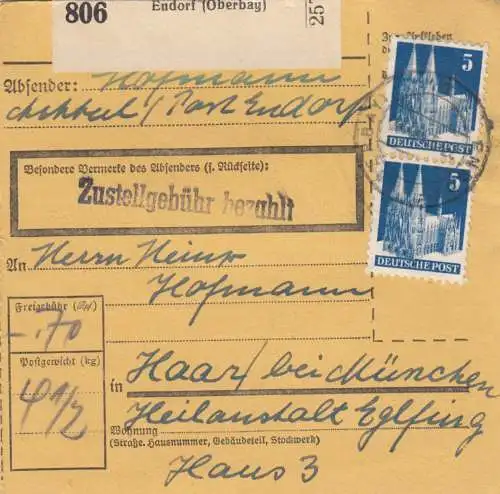 806
Endorf (Oberbay)
257
5
DEUTSCHE POST
5
DEUTSCHE POST
Absender: Hofmann
/ Post Endorf
Besondere Vermerke des Absenders (s. Rückseite):
Zustellgebühr bezahlt
An Herrn Heinr
Hofmann
Freigebühr (Rpf)
-.70
Postgewicht (kg)
4 1/2
in Haar / bei München
Heilanstalt Eglfing
Wohnung
(Straße, Hausnummer, Gebäudeteil, Stockwerk)
Haus 3